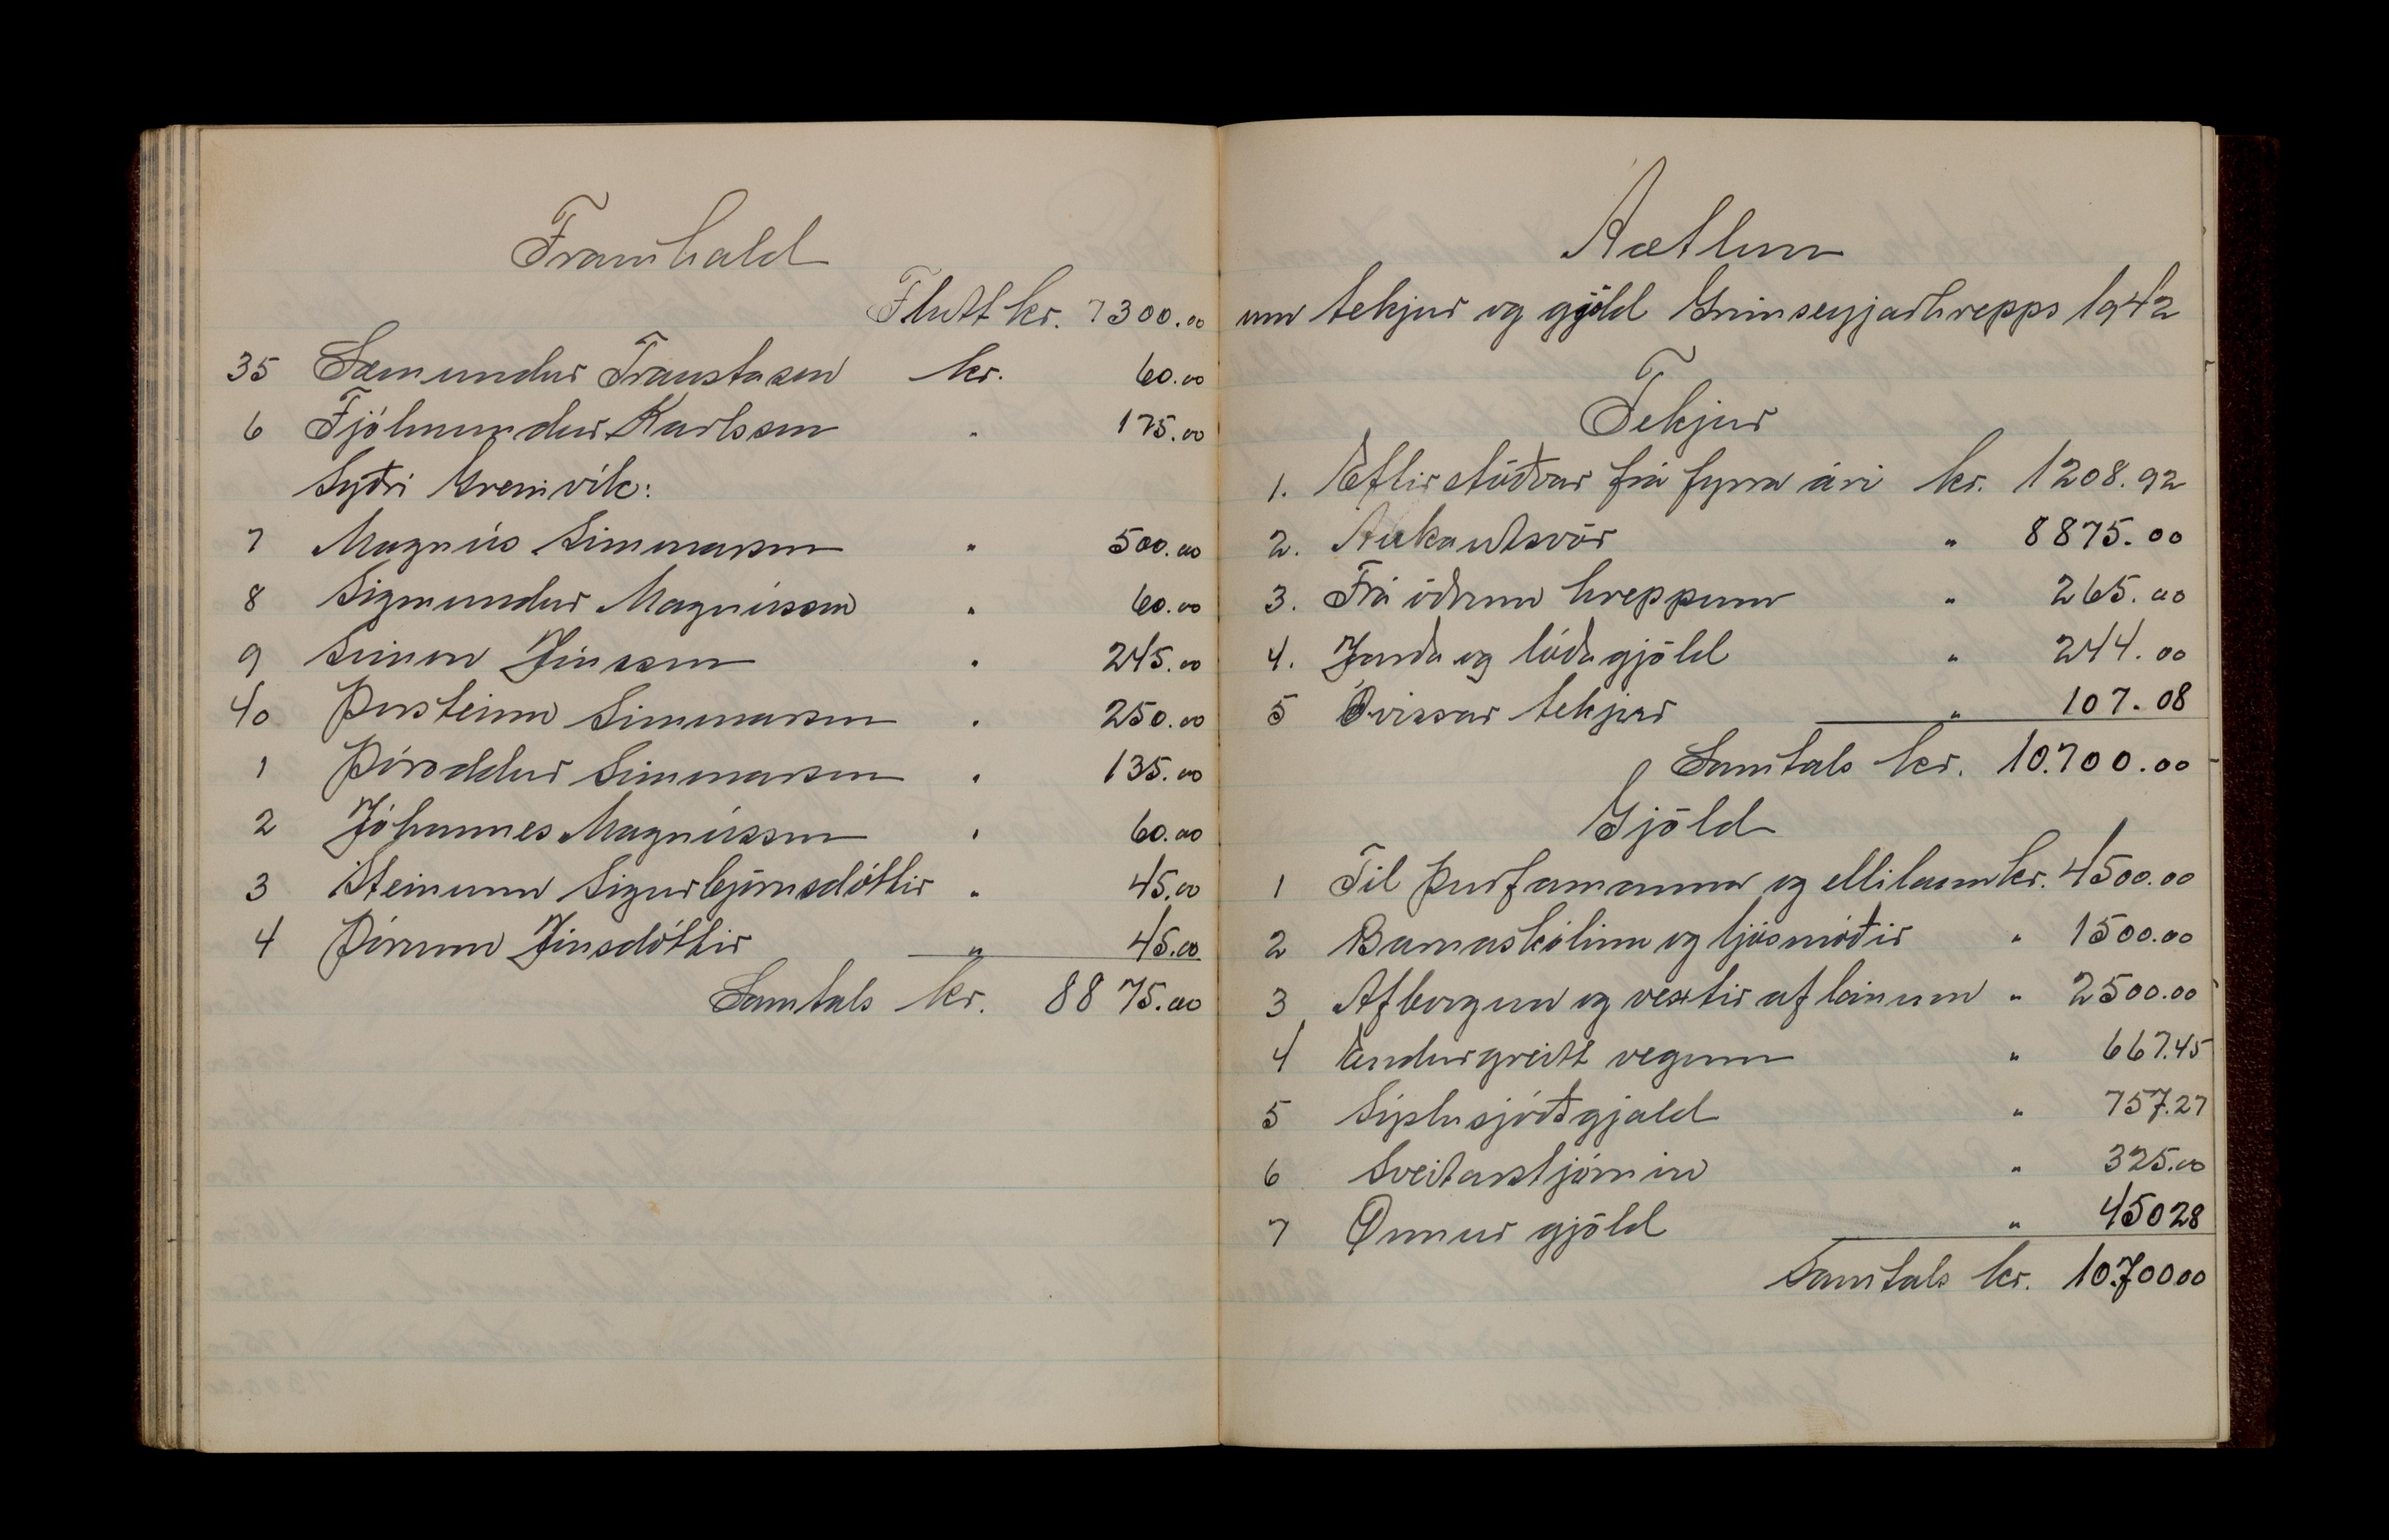 Framhald
Flutt kr. 7300.00
35 Sæmundur Traustason kr. 60.00
6 Fjólmundur Karlsson " 175.00
Syðri Grenivík:
7 Magnús Símonarson " 500.00
8 Sigmundur Magnússon " 60.00
9 Símon Jónsson " 245.00
40 Þorsteinn Símonarson " 250.00
1 Þóroddur Símonarson " 135.00
2 Jóhannes Magnússon " 60.00
3 Steinunn Sigurbjörnsdóttir " 45.00
4 Þórunn Jónsdóttir " 45.00
Samtals kr. 8875.00
Áætlun
um tekjur og gjöld Grímseyjarhrepps 1942
Tekjur
1. Eftirstöðvar frá fyrra ári kr. 1208.92
2. Aukaútsvör " 8875.00
3. Frá öðrum hreppum " 265.00
4. Jarða og lóðagjöld " 244.00
5 Óvissar tekjur " 107.08
Samtals kr. 10.700.00
Gjöld
1 Til þurfamanna og ellilaun kr. 4500.00
2 Barnaskólinn og ljósmóðir " 1500.00
3 Afborgun og vextir af lánum " 2500.00
4 Endurgreitt vegum " 667.45
5 Sýslusjóðsgjald " 757.27
6 Sveitarstjórnin " 325.00
7 Önnur gjöld " 45028
Samtals kr. 10.70000